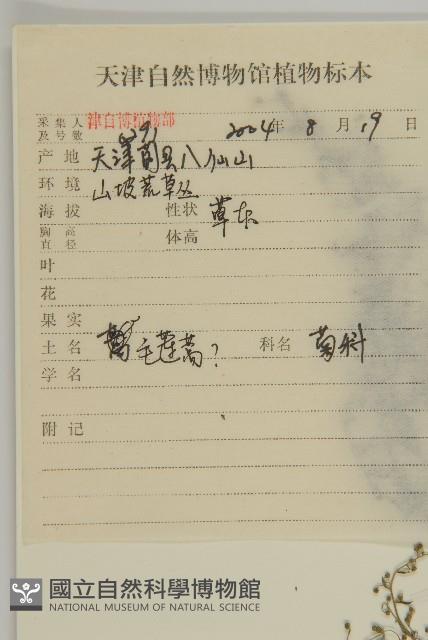 天津自然博物馆植物标本
采集人及号数 津自博植物部 2004年8月19日
产地 天津蓟县八仙山
环境 山坡荒草丛
海拔 性状 草本
胸高直径 体高
叶
花
果实
土名 毛莲蒿? 科名 菊科
学名
附记
國立自然科學博物館
NATIONAL MUSEUM OF NATURAL SCIENCE